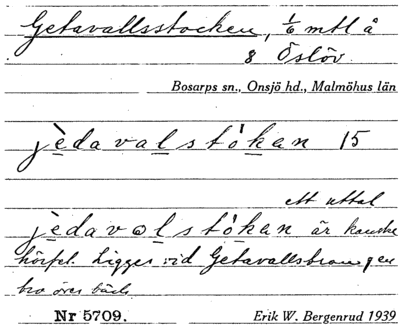 Getavallsstocken, 1/6 mtl å
8 Östöv.
Bosarps sn., Onsjö hd., Malmöhus län
jèdavalstókan 15
ett uttal
jèdavωlstókan är kanske
hörfel. Ligger vid Getavallsbron, en
bro över bäck.
Nr 5709. Erik W. Bergenrud 1939